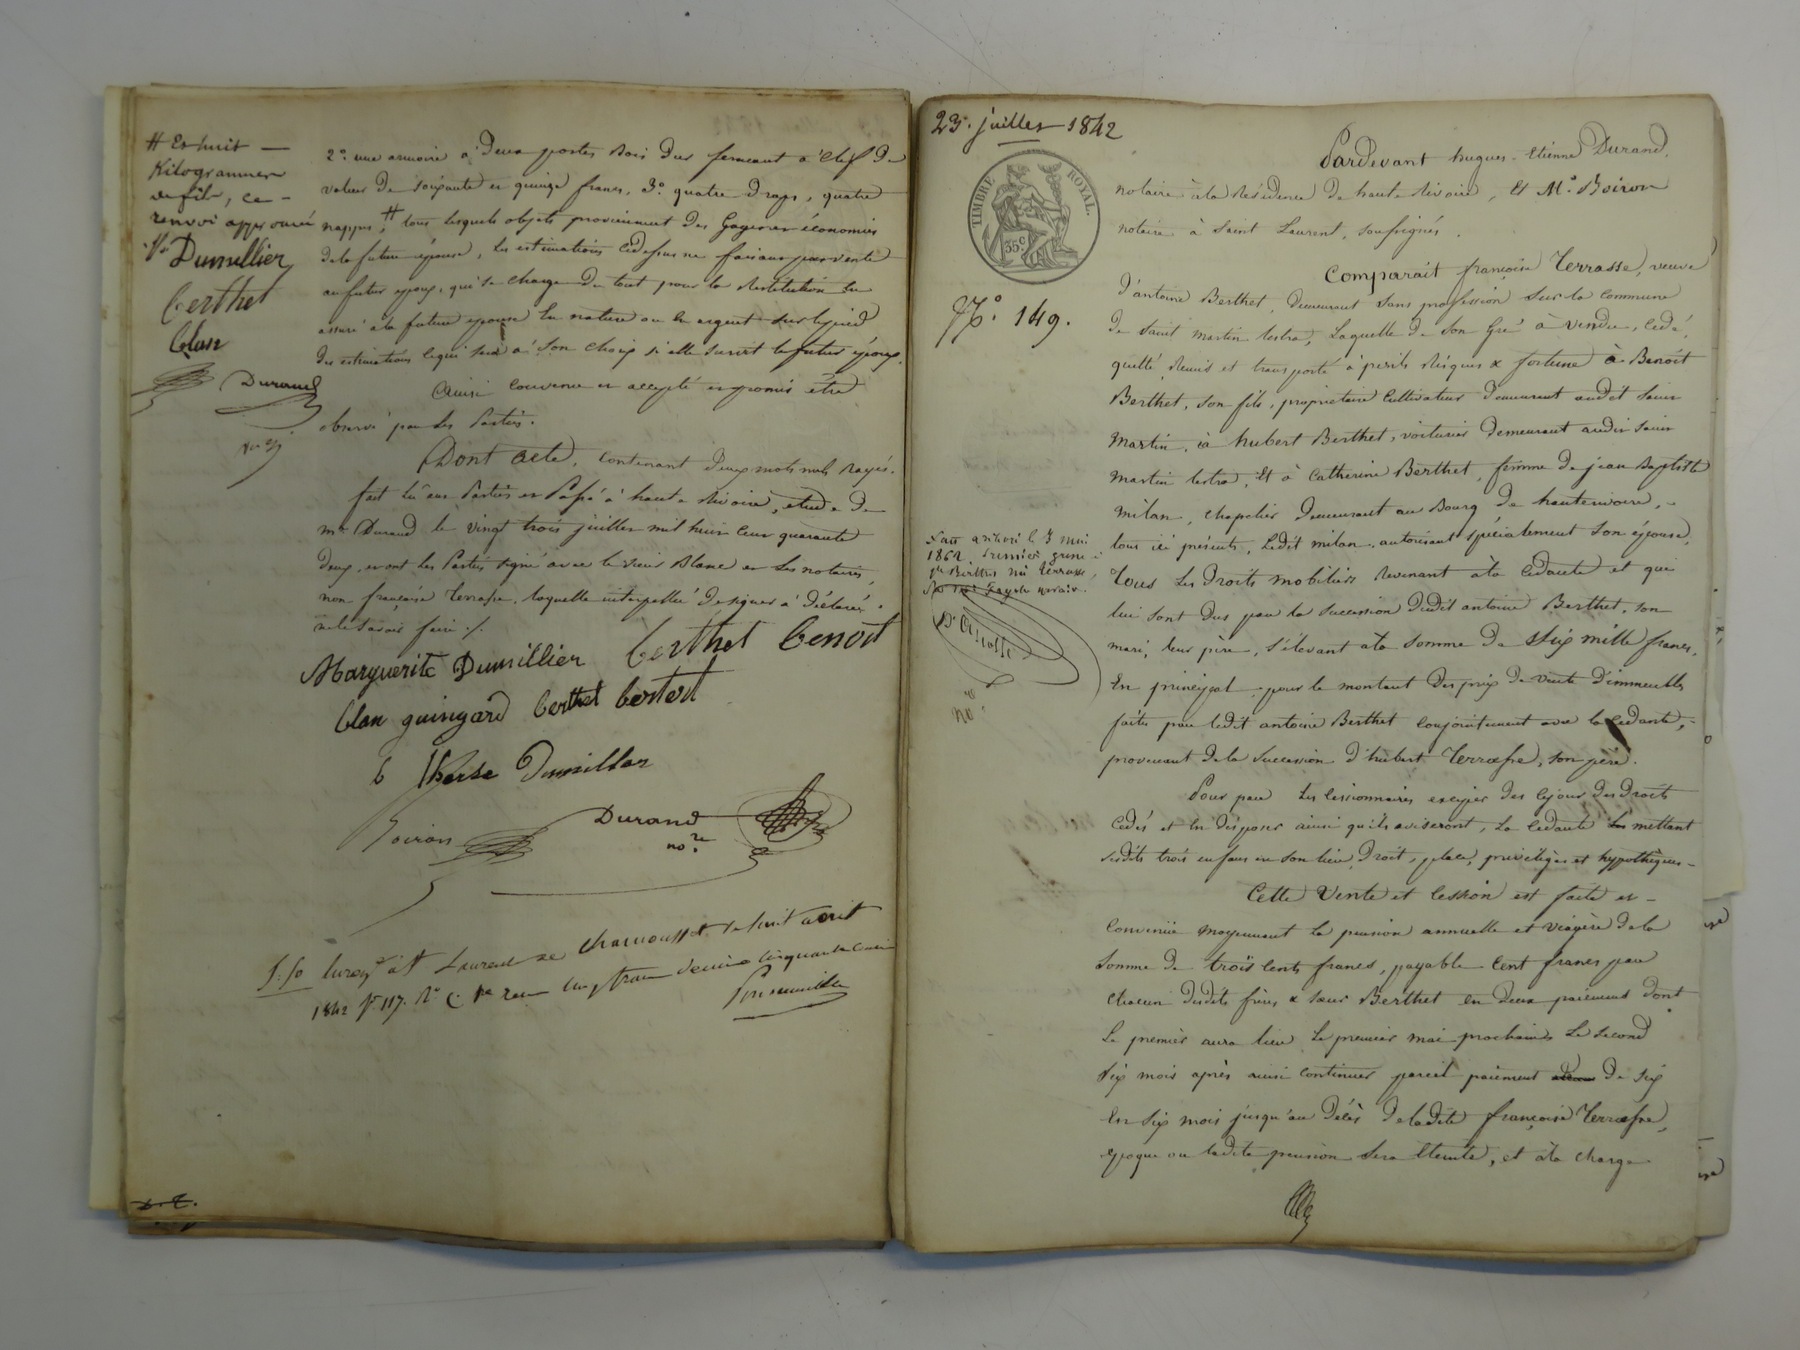 # Et huit —
Kilogrammes
de fil, ce -
renvoi approuvé
Dumillier
Berthet
blan
Durand
2°. une armoire à Deux portes Bois Dur fermant à Clef De
valeur De soixante et quinze francs, 3°. quatre Draps, quatre
nappes, # tous lesquels objets proviennent Des Gages et économies
de la future épouse, les estimations cidessus ne faisant pas vente
au futur époux, qui se charge De tout pour la Restitution en
assuré à la future épouse en nature ou en argent sur le pied
Des estimations, ce qui sera à Son choix si elle survit le futur époux.
Ainsi Convenu et accepté et promis être
observé par Les Parties.
Dont acte, Contenant Deux mots nuls rayés.
fait lu aux Parties et Passé à haute Rivoire, étude De
me Durand le vingt trois juillet mil huit Cent quarante
Deux, et ont les Parties signé avec le sieur Blanc et Les notaires,
non françoise Terrasse, laquelle interpellée De signer a Déclaré
ne le Savoir faire ./.
Marguerite Dumillier Berthet benoit
blan guingard berthet
b therse Dumiller
Boiron Durand
no.re
Enreg.é à St Laurent de Chamousset le huit août
1842 f° 117. R° C.
23. juillet 1842
TIMBRE ROYAL.
35c
N°. 149.
Pardevant hugues-Etienne Durand,
notaire à la Résidence De haute Rivoire, Et Me. Boiron
notaire à Saint Laurent, soussignés.
Comparait françoise Terrasse, veuve
D'antoine Berthet, Demeurant Sans profession Sur la Commune
De Saint Martin lestra, Laquelle De Son Gré à vendu, Cédé,
quitté, Remis et transporté à périls Risques & fortune à Benoit
Berthet, Son fils, propriétaire Cultivateur Demeurant audit Saint
Martin, à hubert Berthet, voiturier Demeurant audit Saint
Martin lestra, Et à Catherine Berthet, femme De jean Baptiste
Milan, Chapelier Demeurant au Bourg De hauterivoire, -
tous ici présents, Ledit Milan autorisant spécialement Son épouse,
Tous Les Droits Mobiliers Revenant à la Cédante et qui
lui sont Dus par la Succession Dudit antoine Berthet, Son
mari, leur père, S'élevant à la Somme De Six mille francs,
En principal, pour le montant Des prix De vente D'immeubles
faites par ledit antoine Berthet Conjointement avec la Cédante,
provenant De la Succession D'hubert Terrasse, Son père.
Pour par les Cessionnaires exciper Dès Ce jour des Droits
Cédés et En Disposer ainsi qu'ils aviseront, La Cédante les mettant
Sesdits trois enfans en Son lieu, Droit, place, privilèges et hypothèques -
Cette Vente et Cession est faite et -
Convenue moyennant la pension annuelle et viagère De la
Somme De trois Cents francs, payable Cent francs par
Chacun Desdits frères & Soeur Berthet En Deux paiements Dont
Le premier aura lieu Le premier mai prochain, Le Second
Six mois après ainsi Continuer pareil paiement De Six
En Six mois jusqu'au Décès De ladite françoise Terrasse,
époque ou ladite pension Sera Eteinte, et à la Charge